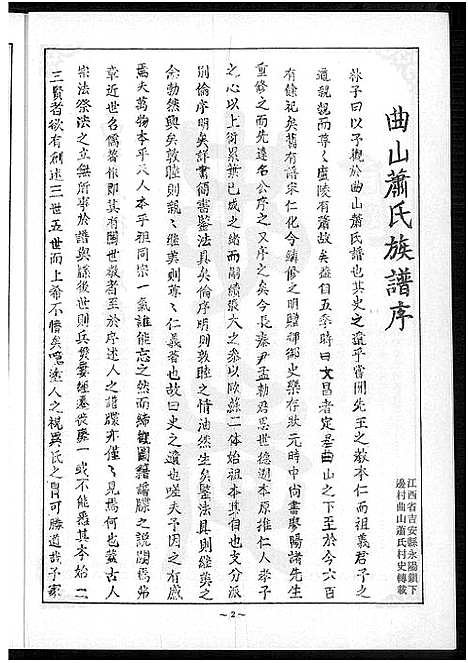 曲山蕭氏族譜序
江西省吉安縣永陽鎮下
邊村曲山蕭氏村史轉載
林子曰以予觀於曲山蕭氏譜也其史之遺乎嘗聞先王之教本仁而祖義君子之
道親親而尊〻廬陵有蕭故矣蓋自五季時曰文昌者定居曲山之下至於今六百
有餘祀矣舊有譜宋仁化令鏻修之明贈御史樂存狀元時中尚書廖陽諸先生
重修之而先達名公序之又序之矣今長泰尹孟勅君思世德溯本原推仁人孝子
之心以上衍累葉已成之緒而嗣續張大之參以歐蘇二体始祖以下支分派
別倫序明矣詳書簡書鑒法具矣倫序明則敦睦之情油然生矣鑒法具則繼美之
念勃然興矣敦睦則親〻繼美則尊〻仁義著也故曰史之遺也嗟夫予因之有感
焉夫萬物本乎天人本乎祖同宗一氣誰能忘之然而締觀圖籍譜牒之說闊焉弗
章近世名儒著作即其有關世教者至於序述人之譜牒亦僅〻見焉何也蓋古人
宗法祭法之立無所事於譜與繇後世則兵燹喪亡一或不能悉其本始二
三賢者欲有創述三世五世而上希不惜矣嗟逺人之視吳氏之冑可勝道哉予家
～2～